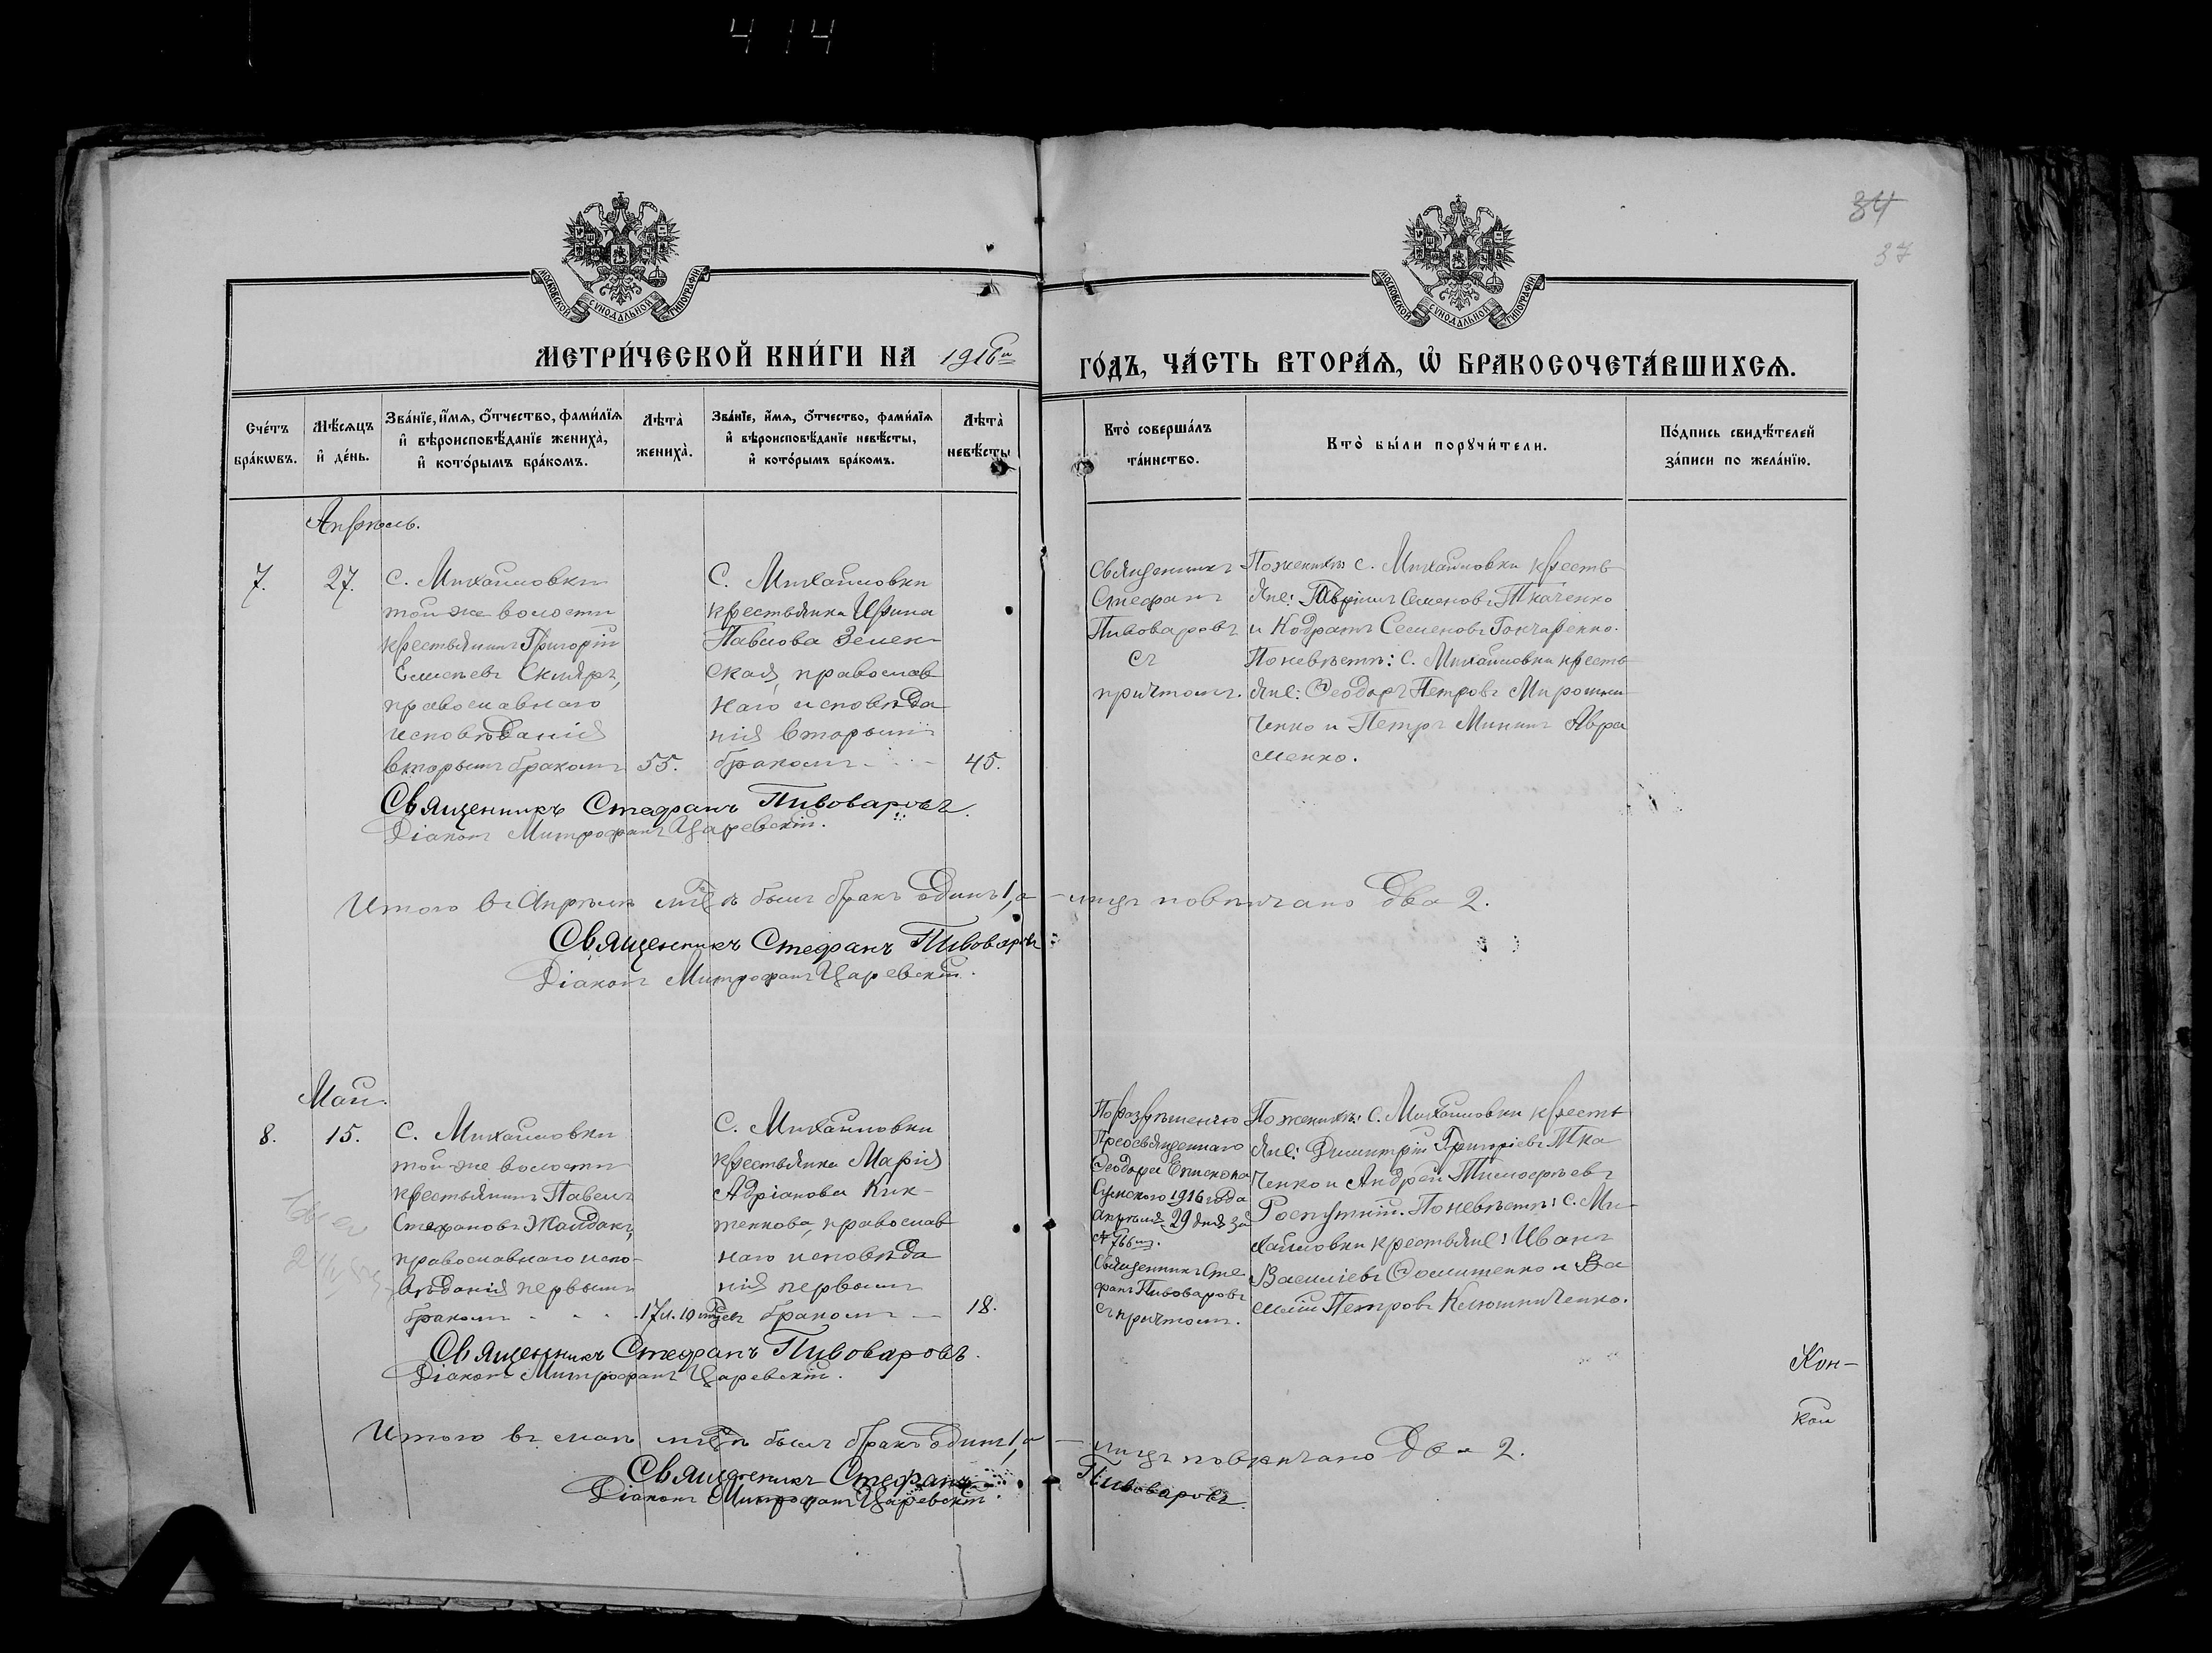 414
34
37
МОСКОВСКОЙ СѴНОДАЛЬНОЙ ТИПОГРАФІИ
МОСКОВСКОЙ СѴНОДАЛЬНОЙ ТИПОГРАФІИ
МЕТРИ́ЧЕСКОЙ КНИ́ГИ НА 1916й ГО́ДЪ, ЧА́СТЬ ВТОРА́Я, Ѡ҆ БРАКОСОЧЕТА́ВШИХСЯ.
Сче́тъ бра́кѡвъ.
Мѣ́сяцъ и҆ де́нь.
Зва́нїе, и҆́мя, ѻ҆́тчество, фами́лїя и҆ вѣроисповѣ́данїе жениха̀, и҆ кото́рымъ бра́комъ.
Лѣта̀ жениха̀.
Зва́нїе, и҆́мя, ѻ҆́тчество, фами́лїя и҆ вѣроисповѣ́данїе невѣ́сты, и҆ кото́рымъ бра́комъ.
Лѣта̀ невѣ́сты
Кто̀ соверша́лъ та́инство.
Кто̀ бы́ли порꙋчи́тели.
По́дпись свидѣ́телей за́писи по жела́нїю.
Апрѣль.
7.
27.
с. Михайловки
той-же волости
крестьянинъ Григорій
Емельевъ Скляръ,
православнаго
исповѣданія
вторымъ бракомъ
55.
С. Михайловки
крестьянка Ирина
Павлова Зелен-
ская, православ
наго исповѣда
нія вторымъ
бракомъ
45.
Священникъ
Стефанъ
Пивоваровъ
съ
причтомъ.
По женихѣ: с. Михайловки кресть
яне: Гавріилъ Семеновъ Ткаченко
и Кодратъ Семеновъ Гончаренко.
По невѣстѣ: С. Михайловки кресть
яне: Ѳеодоръ Петровъ Мирошни
ченко и Петръ Мининъ Авра
менко.
Священникъ Стефанъ Пивоваровъ.
Діаконъ Митрофанъ Царевскій.
Итого въ Апрѣлѣ м-цѣ былъ бракъ одинъ 1, а лицъ повѣнчано два 2.
Священникъ Стефанъ Пивоваровъ
Діаконъ Митрофанъ Царевскій.
Май.
8.
15.
С. Михайловки
той-же волости
крестьянинъ Павелъ
Стефановъ Жайданъ,
православнаго испо-
вѣданія первымъ
бракомъ
17 л. 10 мцевъ
С. Михайловки
крестьянка Марія
Адріанова Кик-
тенкова, православ
наго исповѣда
нія первымъ
бракомъ
18.
По разрѣшенію
Преосвященнаго
Ѳеодора Епископа
Сумскаго 1916 года
Апрѣля 29 дня за
№ 766мъ.
Священникъ Сте
фанъ Пивоваровъ
съ причтомъ.
По женихѣ: С. Михайловки кресть
яне: Димитрій Григоріевъ Тка
ченко и Андрей Тимоѳеевъ
Роспутній. По невѣстѣ: С. Ми
хайловки крестьяне: Иванъ
Василіевъ Ѳомитенко и Ва
силій Петровъ Клюшниченко.
Священникъ Стефанъ Пивоваровъ.
Діаконъ Митрофанъ Царевскій.
Кон-
кой
Итого въ маѣ м-цѣ былъ бракъ одинъ 1, а лицъ повѣнчано два 2.
Священникъ Стефанъ Пивоваровъ.
Діаконъ Митрофанъ Царевскій.